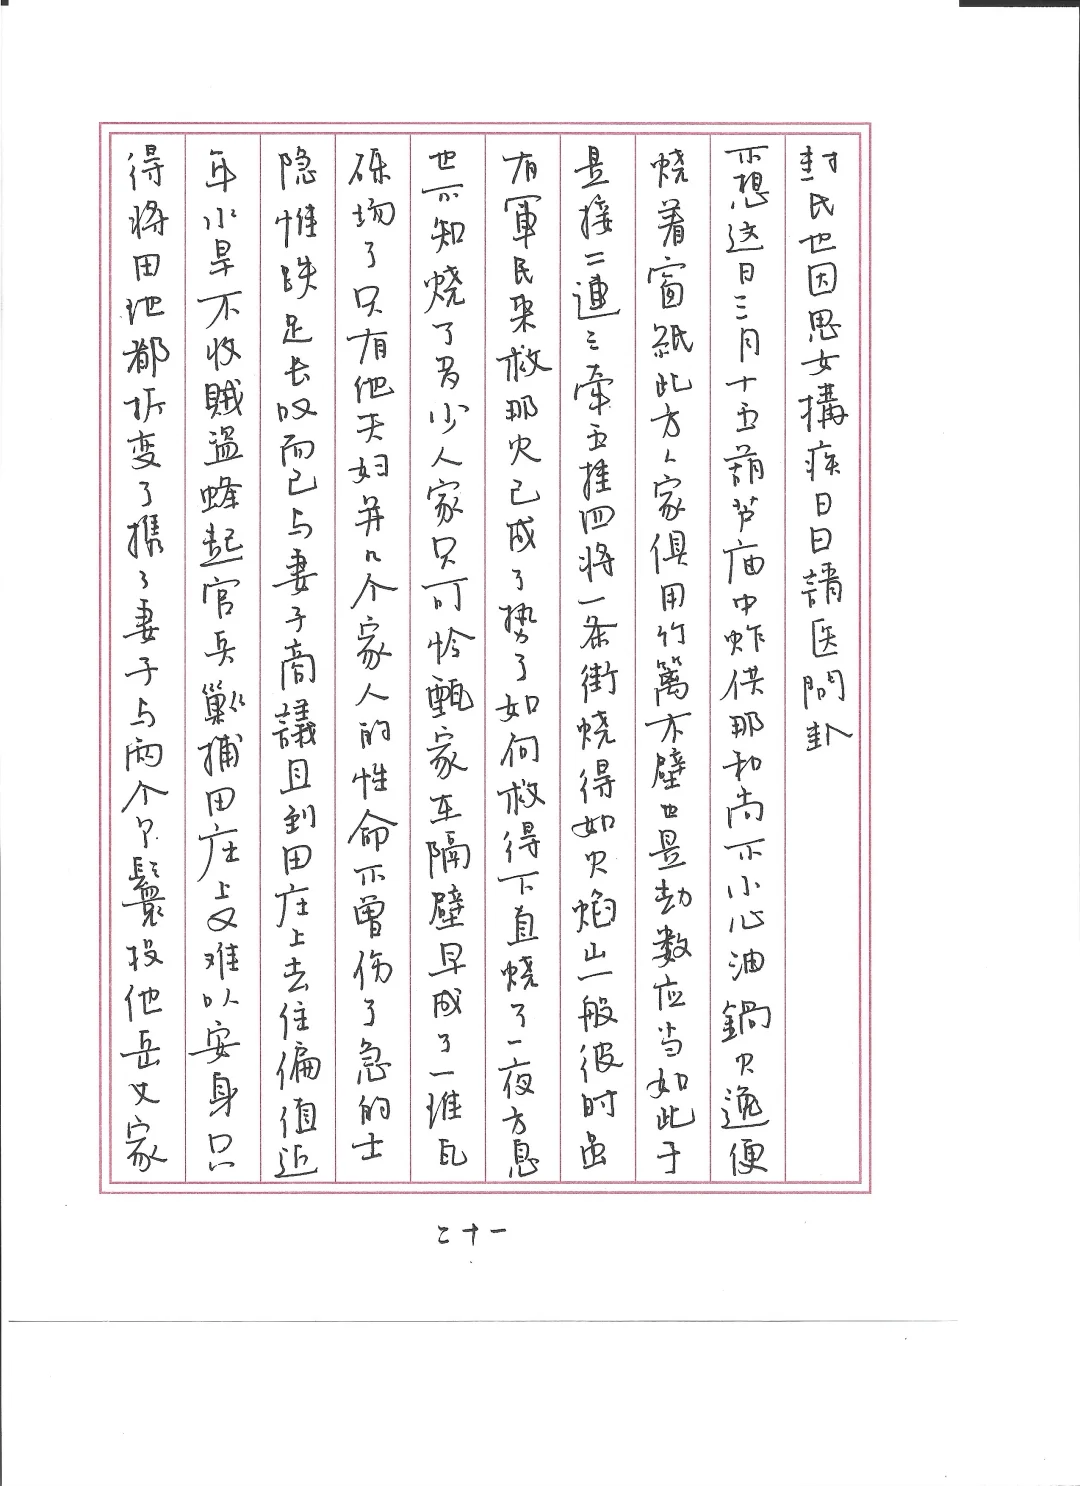 封氏也因思女搆疾日日請医問卦
不想这日三月十五葫芦庙中炸供那和尚不小心油鍋火逸便
烧着窗紙此方人家俱用竹篱木壁也是劫数应当如此于
是接二連三牽五挂四将一条街烧得如火焰山一般彼时虽
有軍民来救那火已成了势了如何救得下直烧了一夜方息
也不知烧了多少人家只可怜甄家在隔壁早成了一堆瓦
砾场了只有他夫妇并几个家人的性命不曾伤了急的士
隐惟跌足长叹而已与妻子商議且到田庄上去住偏值近
年水旱不收贼盗蜂起官兵剿捕田庄上又难以安身只
得将田地都折变了携了妻子与两个丫鬟投他岳丈家
二十一